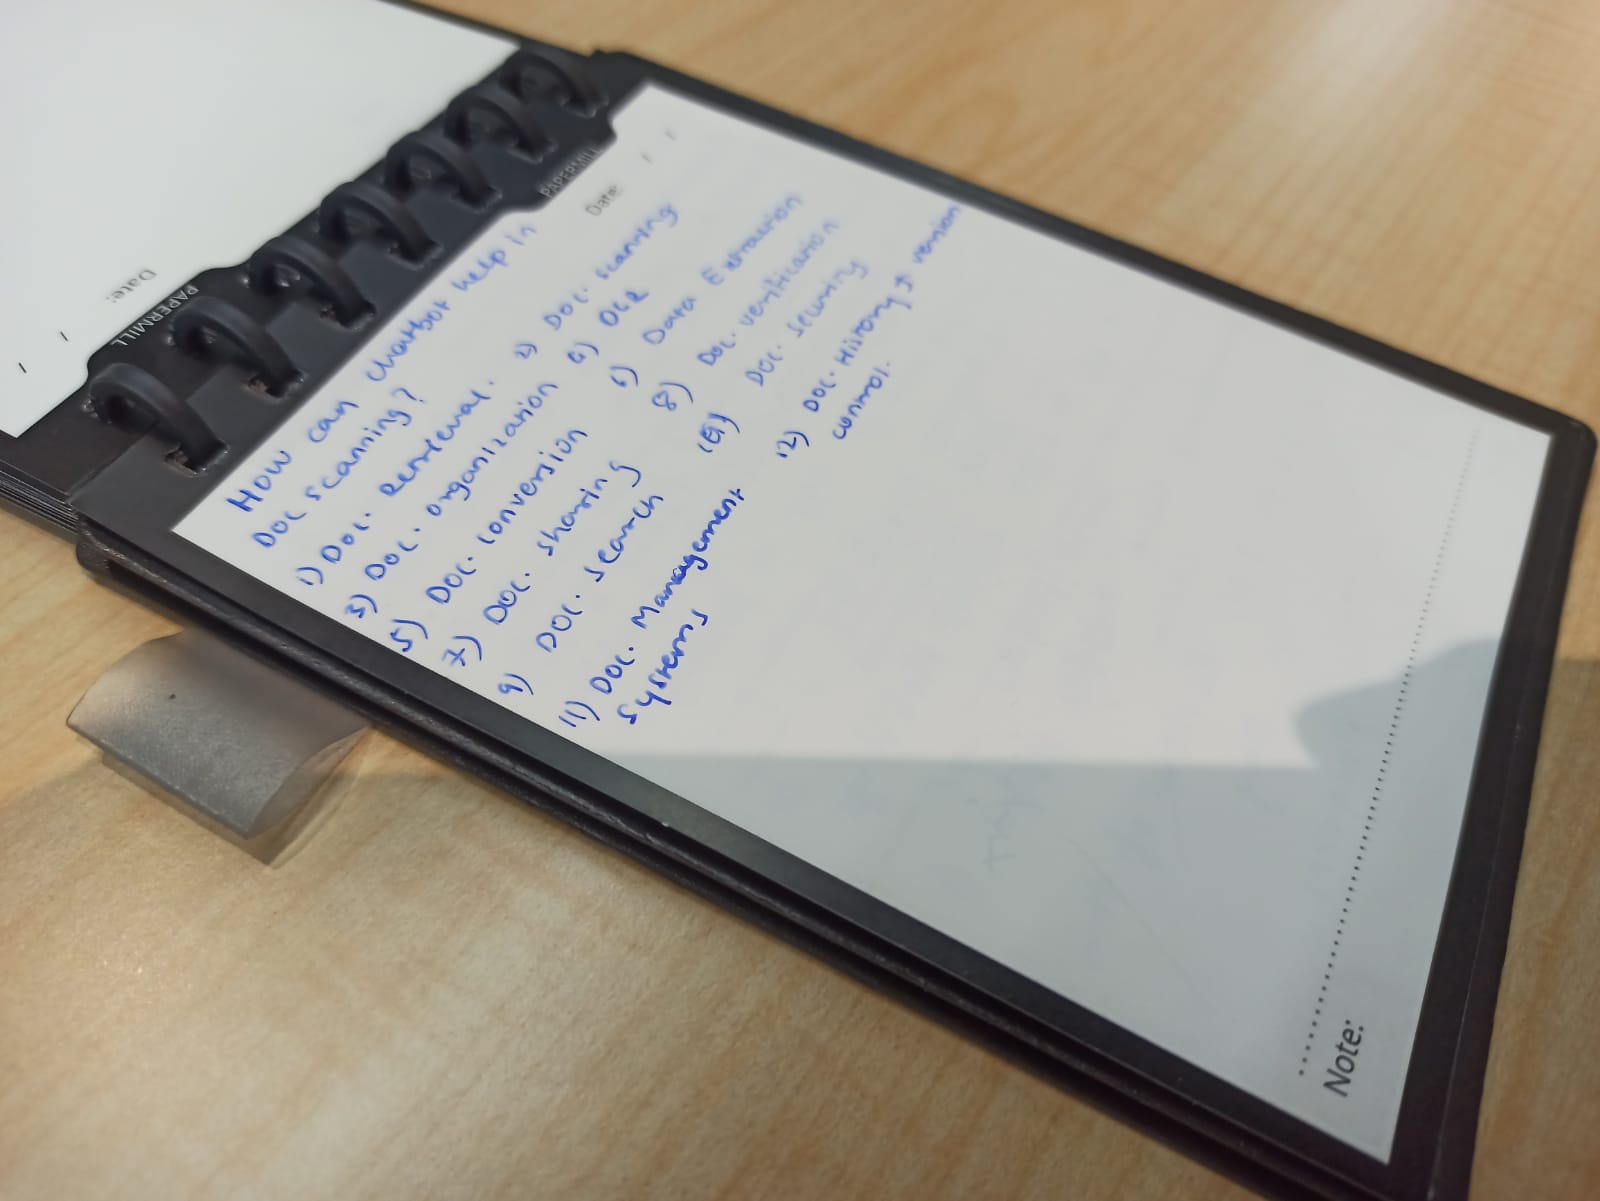 PAPERMILL
Date:
PAPERMILL
Date:
How can chatbot help in
Doc scanning?
1) Doc. Retrieval. 2) Doc. scanning
3) Doc. organization 4) OCR
5) Doc. conversion 6) Data Extraction
7) Doc. sharing 8) Doc. verification
9) Doc. search 10) Doc. security
11) Doc. Management 12) Doc. History & version
systems control.
Note: